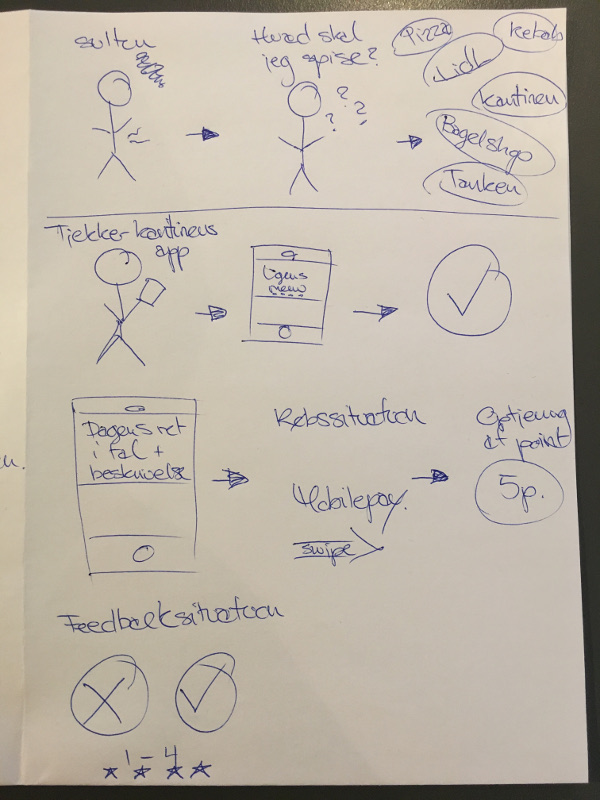 sulten
Hvad skal
jeg spise?
? ? ?
Pizza
Kebab
Lidl
Kantinen
Bagelshop
Tanken
Tjekker kantinens
app
Ugens
menu
Dagens ret
i tal +
beskrivelse
Købssituation
Mobilepay
swipe
Optjening
af point
5p.
Feedbacksituation
1-4